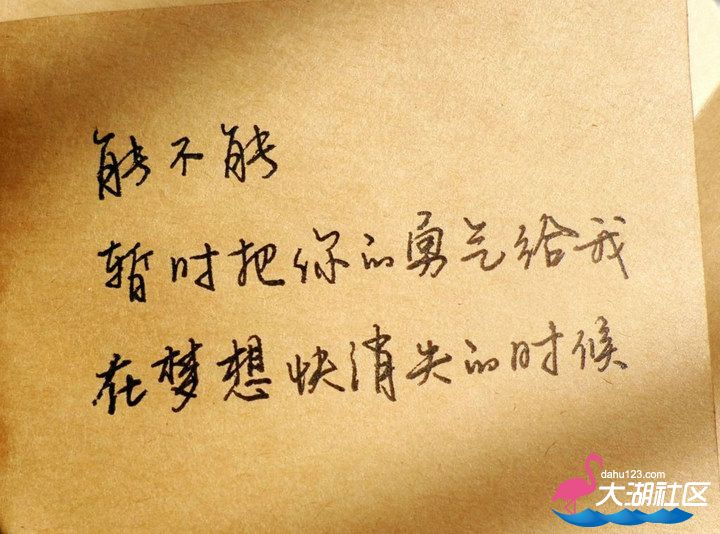 能不能
暂时把你的勇气给我
在梦想快消失的时候
dahu123.com
大湖社区